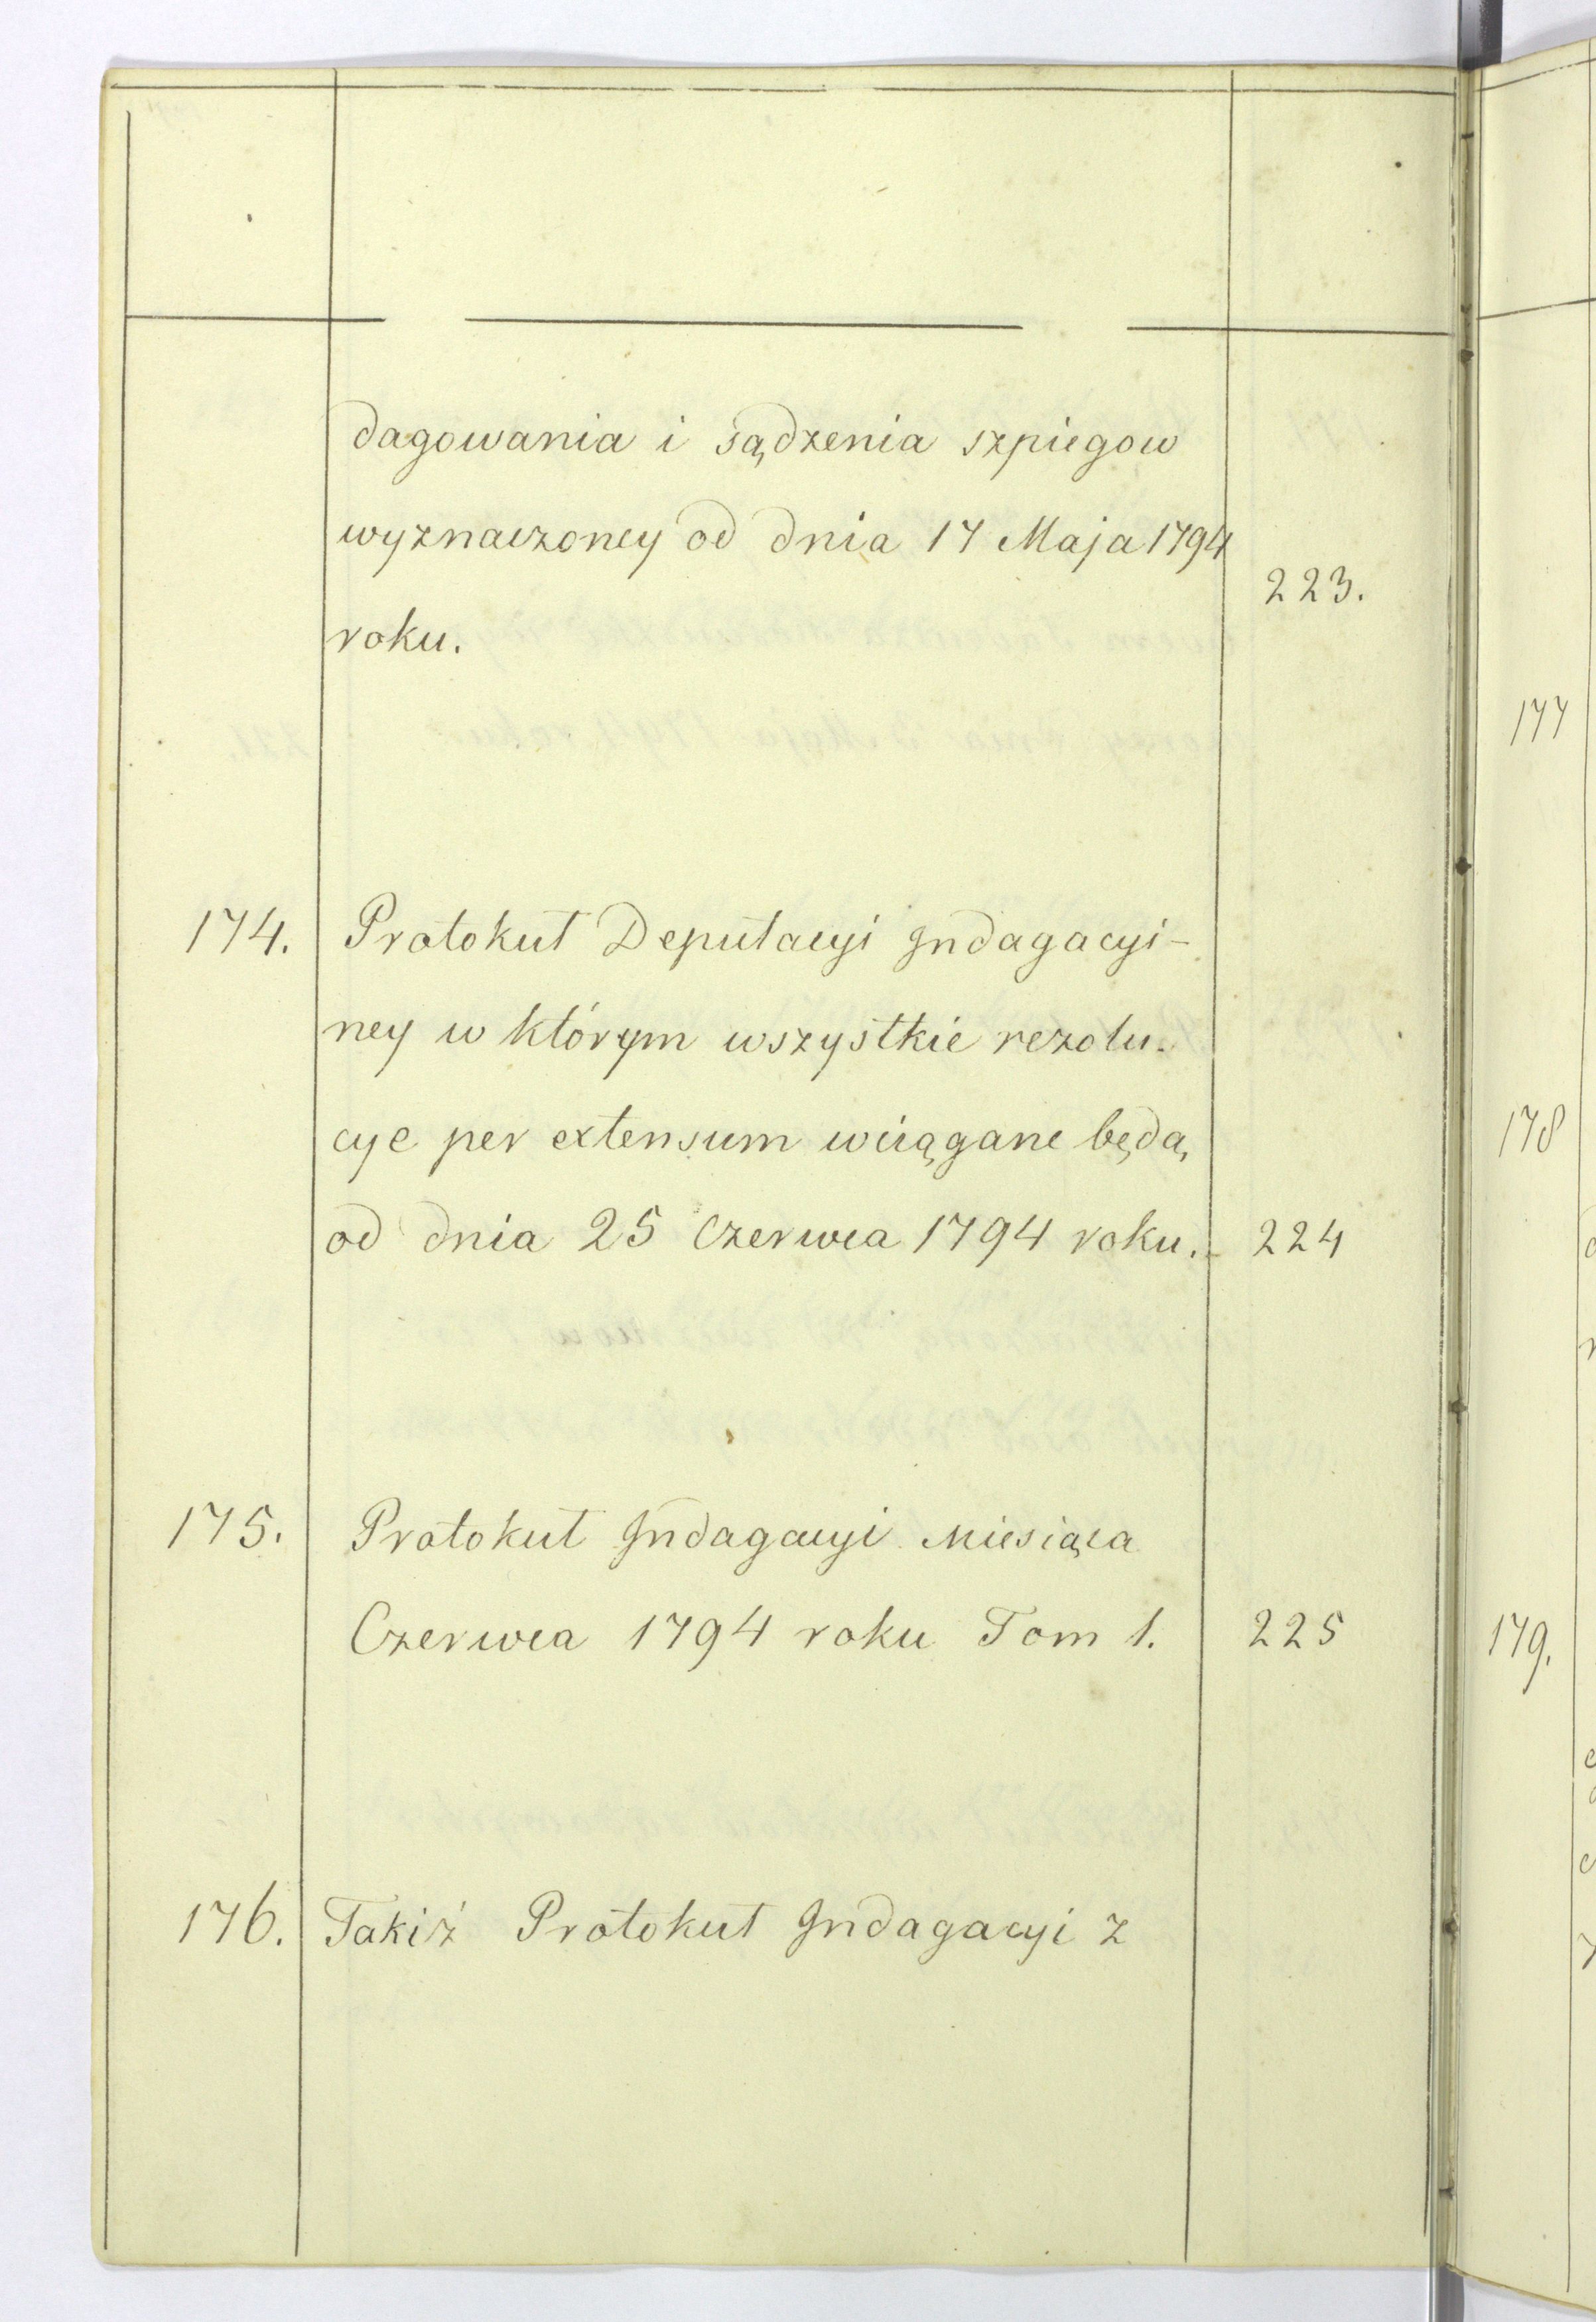 dagowania i sądzenia szpiegow
wyznaczoney od dnia 17 Maja 1794
223.
roku.
174. Protokuł Deputacyi Indagacyi-
ney w którym wszystkie rezolu-
cye per extensum wciągane będą,
od dnia 25 Czerwca 1794 roku. 224
175. Protokuł Indagacyi Miesiąca
Czerwca 1794 roku Tom 1. 225
176. Takiż Protokuł Indagacyi z
177
178
179.